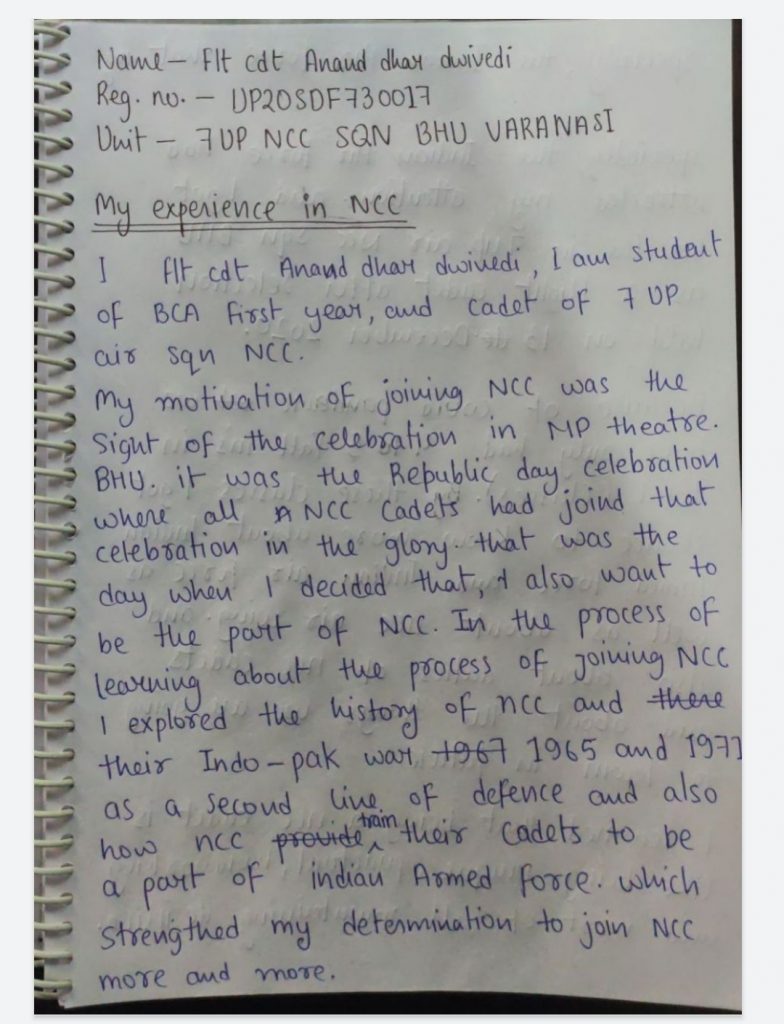 Name – Flt cdt Anand dhar dwivedi
Reg. no. – UP20SDF730017
Unit – 7UP NCC SQN BHU VARANASI
My experience in NCC
I flt cdt Anand dhar dwivedi, I am student
of BCA first year, and cadet of 7 UP
air sqn NCC.
My motivation of joining NCC was the
Sight of the celebration in MP theatre.
BHU. it was the Republic day celebration
where all NCC Cadets had joind that
celebration in the glory. that was the
day when I decided that, I also want to
be the part of NCC. In the process of
learning about the process of joining NCC
I explored the history of ncc and there
their Indo-pak war 1967 1965 and 1971
as a second line of defence and also
how ncc provide train their Cadets to be
a part of indian Armed force. which
strengthed my determination to join NCC
more and more.